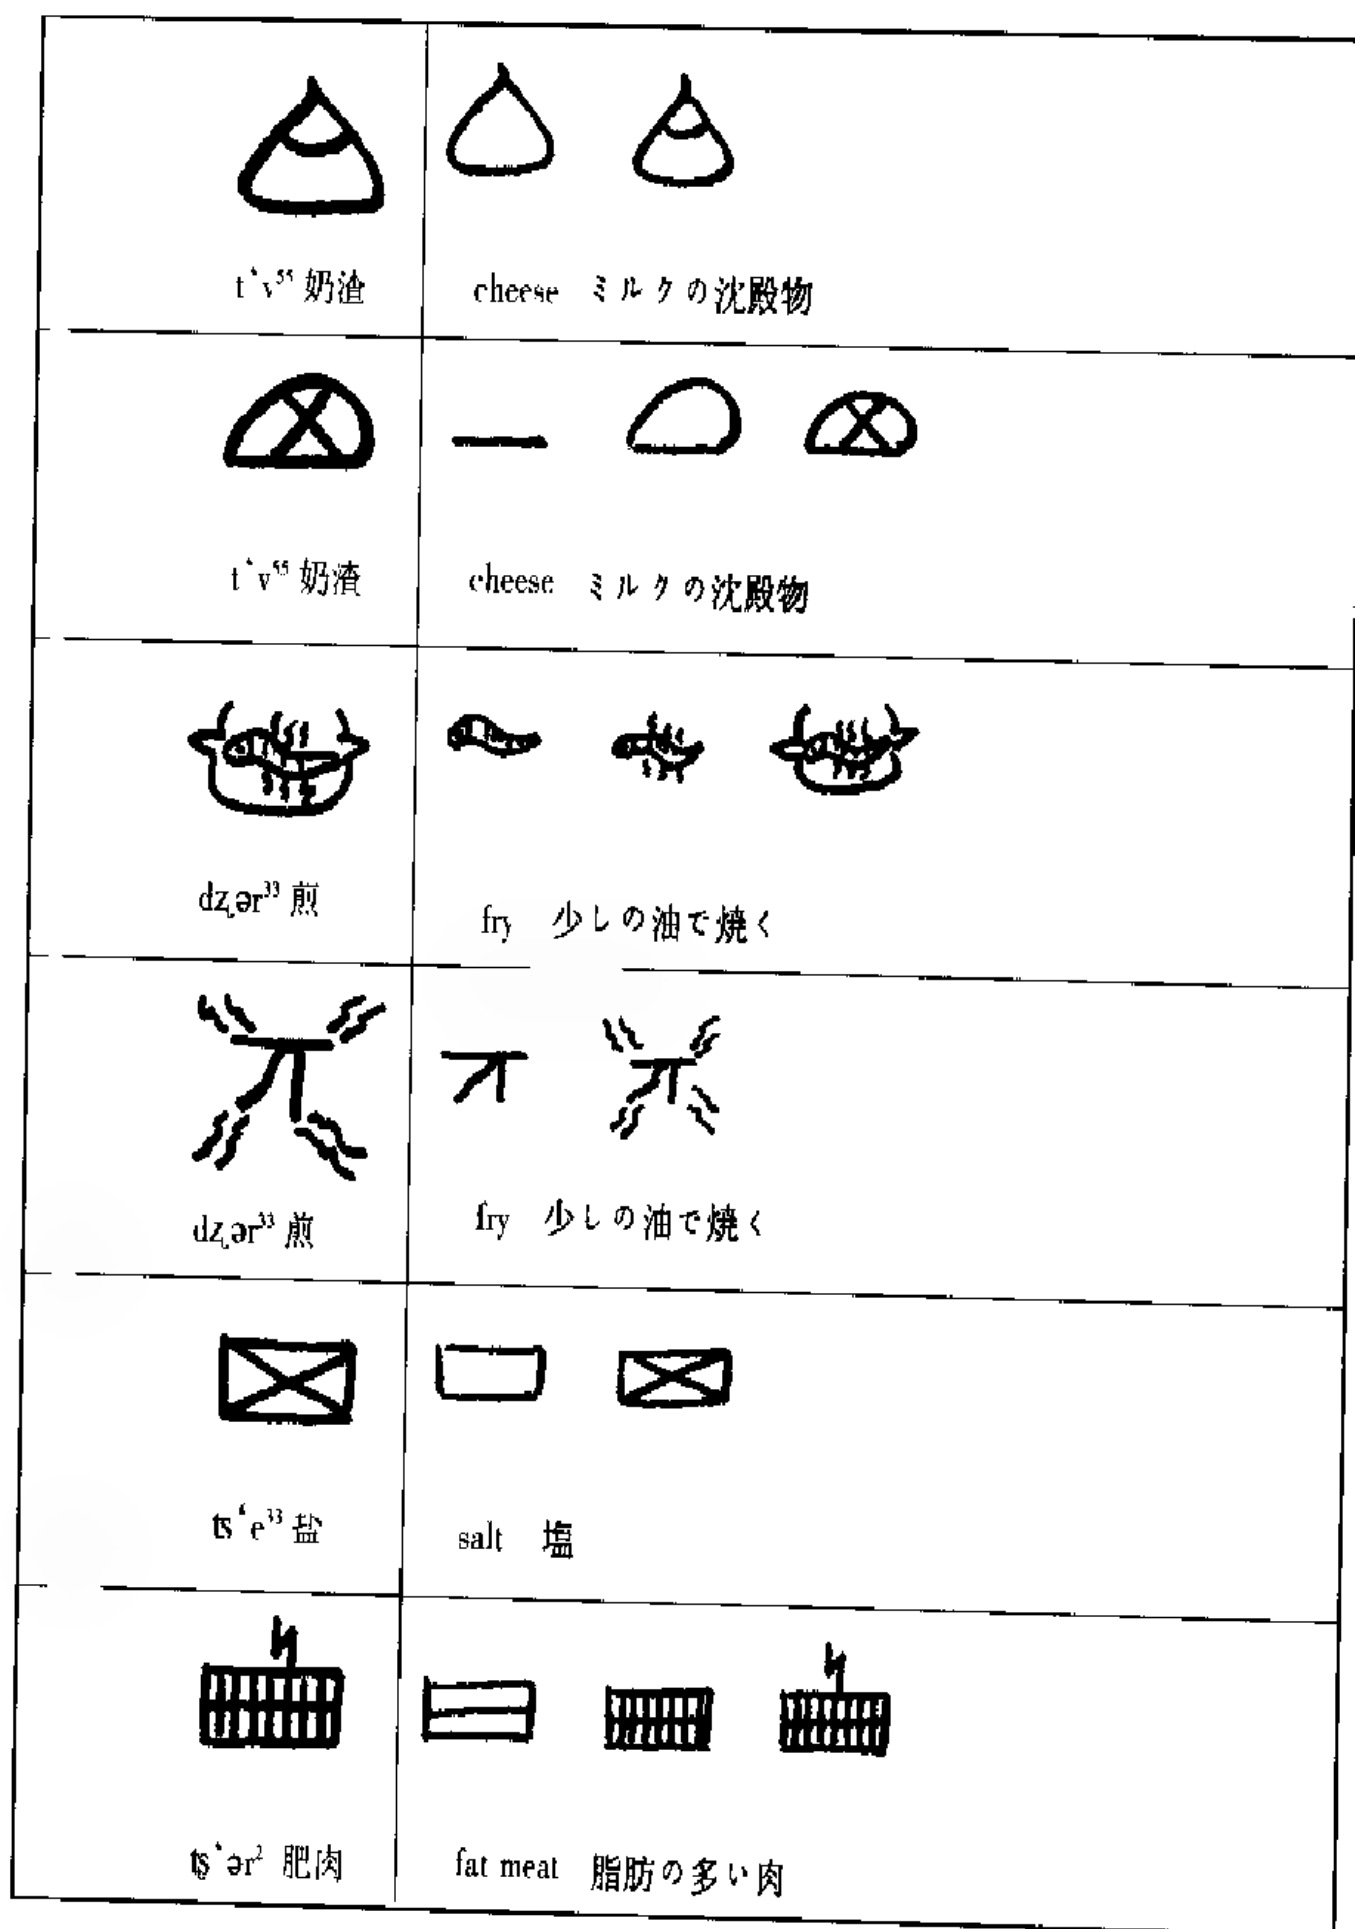 t‘v⁵⁵ 奶渣
cheese ミルクの沈殿物
t‘v⁵⁵ 奶渣
cheese ミルクの沈殿物
dʐər³³ 煎
fry 少しの油で焼く
dʐər³³ 煎
fry 少しの油で焼く
ʦ‘e³³ 盐
salt 塩
tʂ‘ər² 肥肉
fat meat 脂肪の多い肉